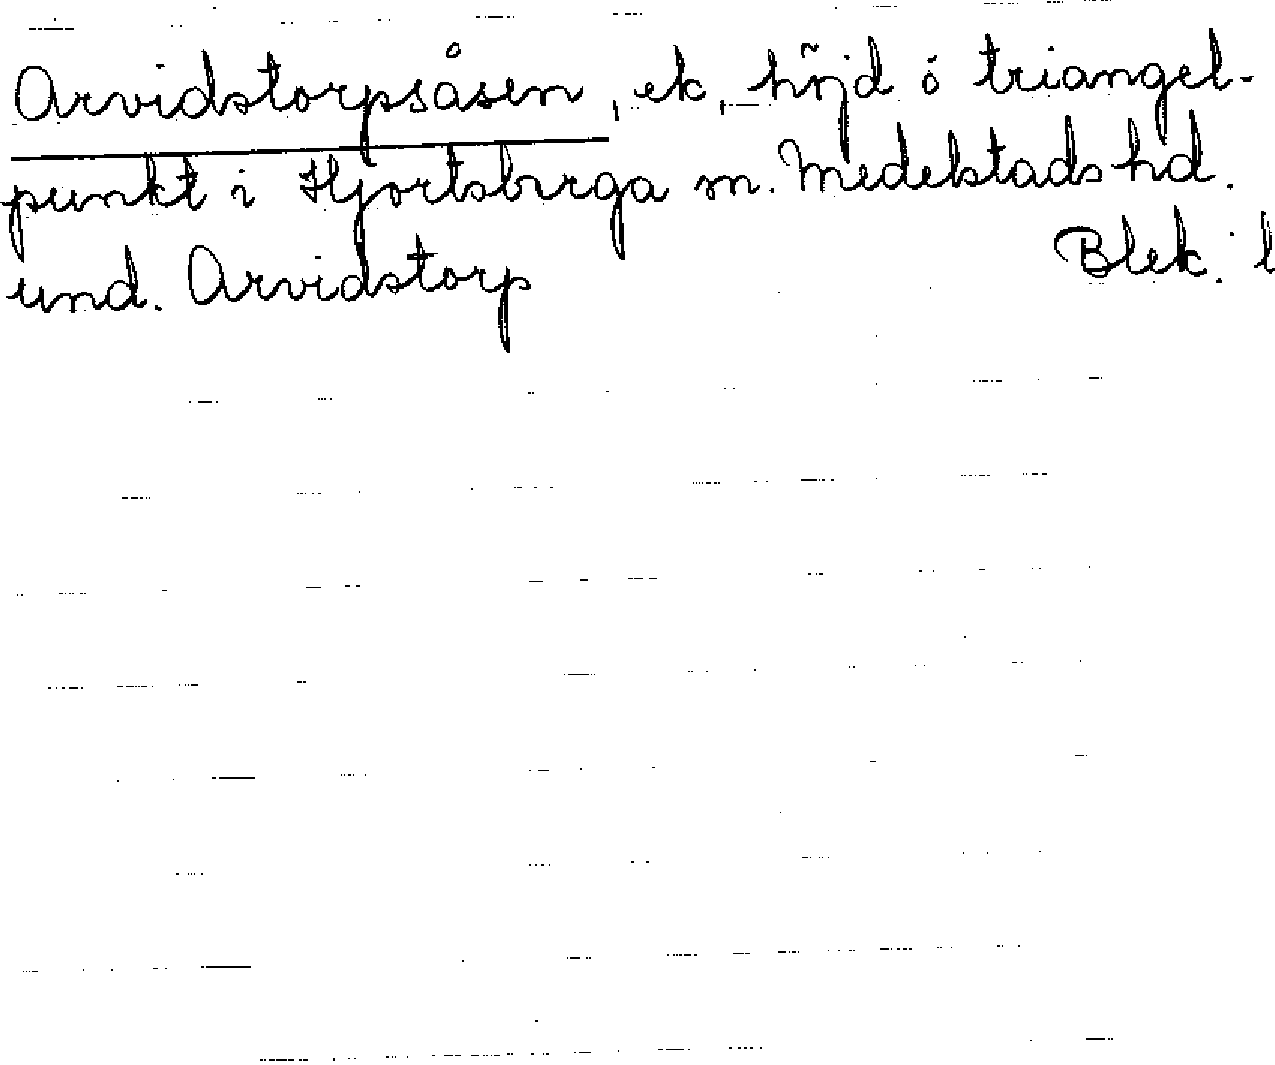 Arvidstorpsåsen, ek, höjd ó triangel-
punkt i Hjortsberga sn. Medelstads hd.
und. Arvidstorp Blek. l